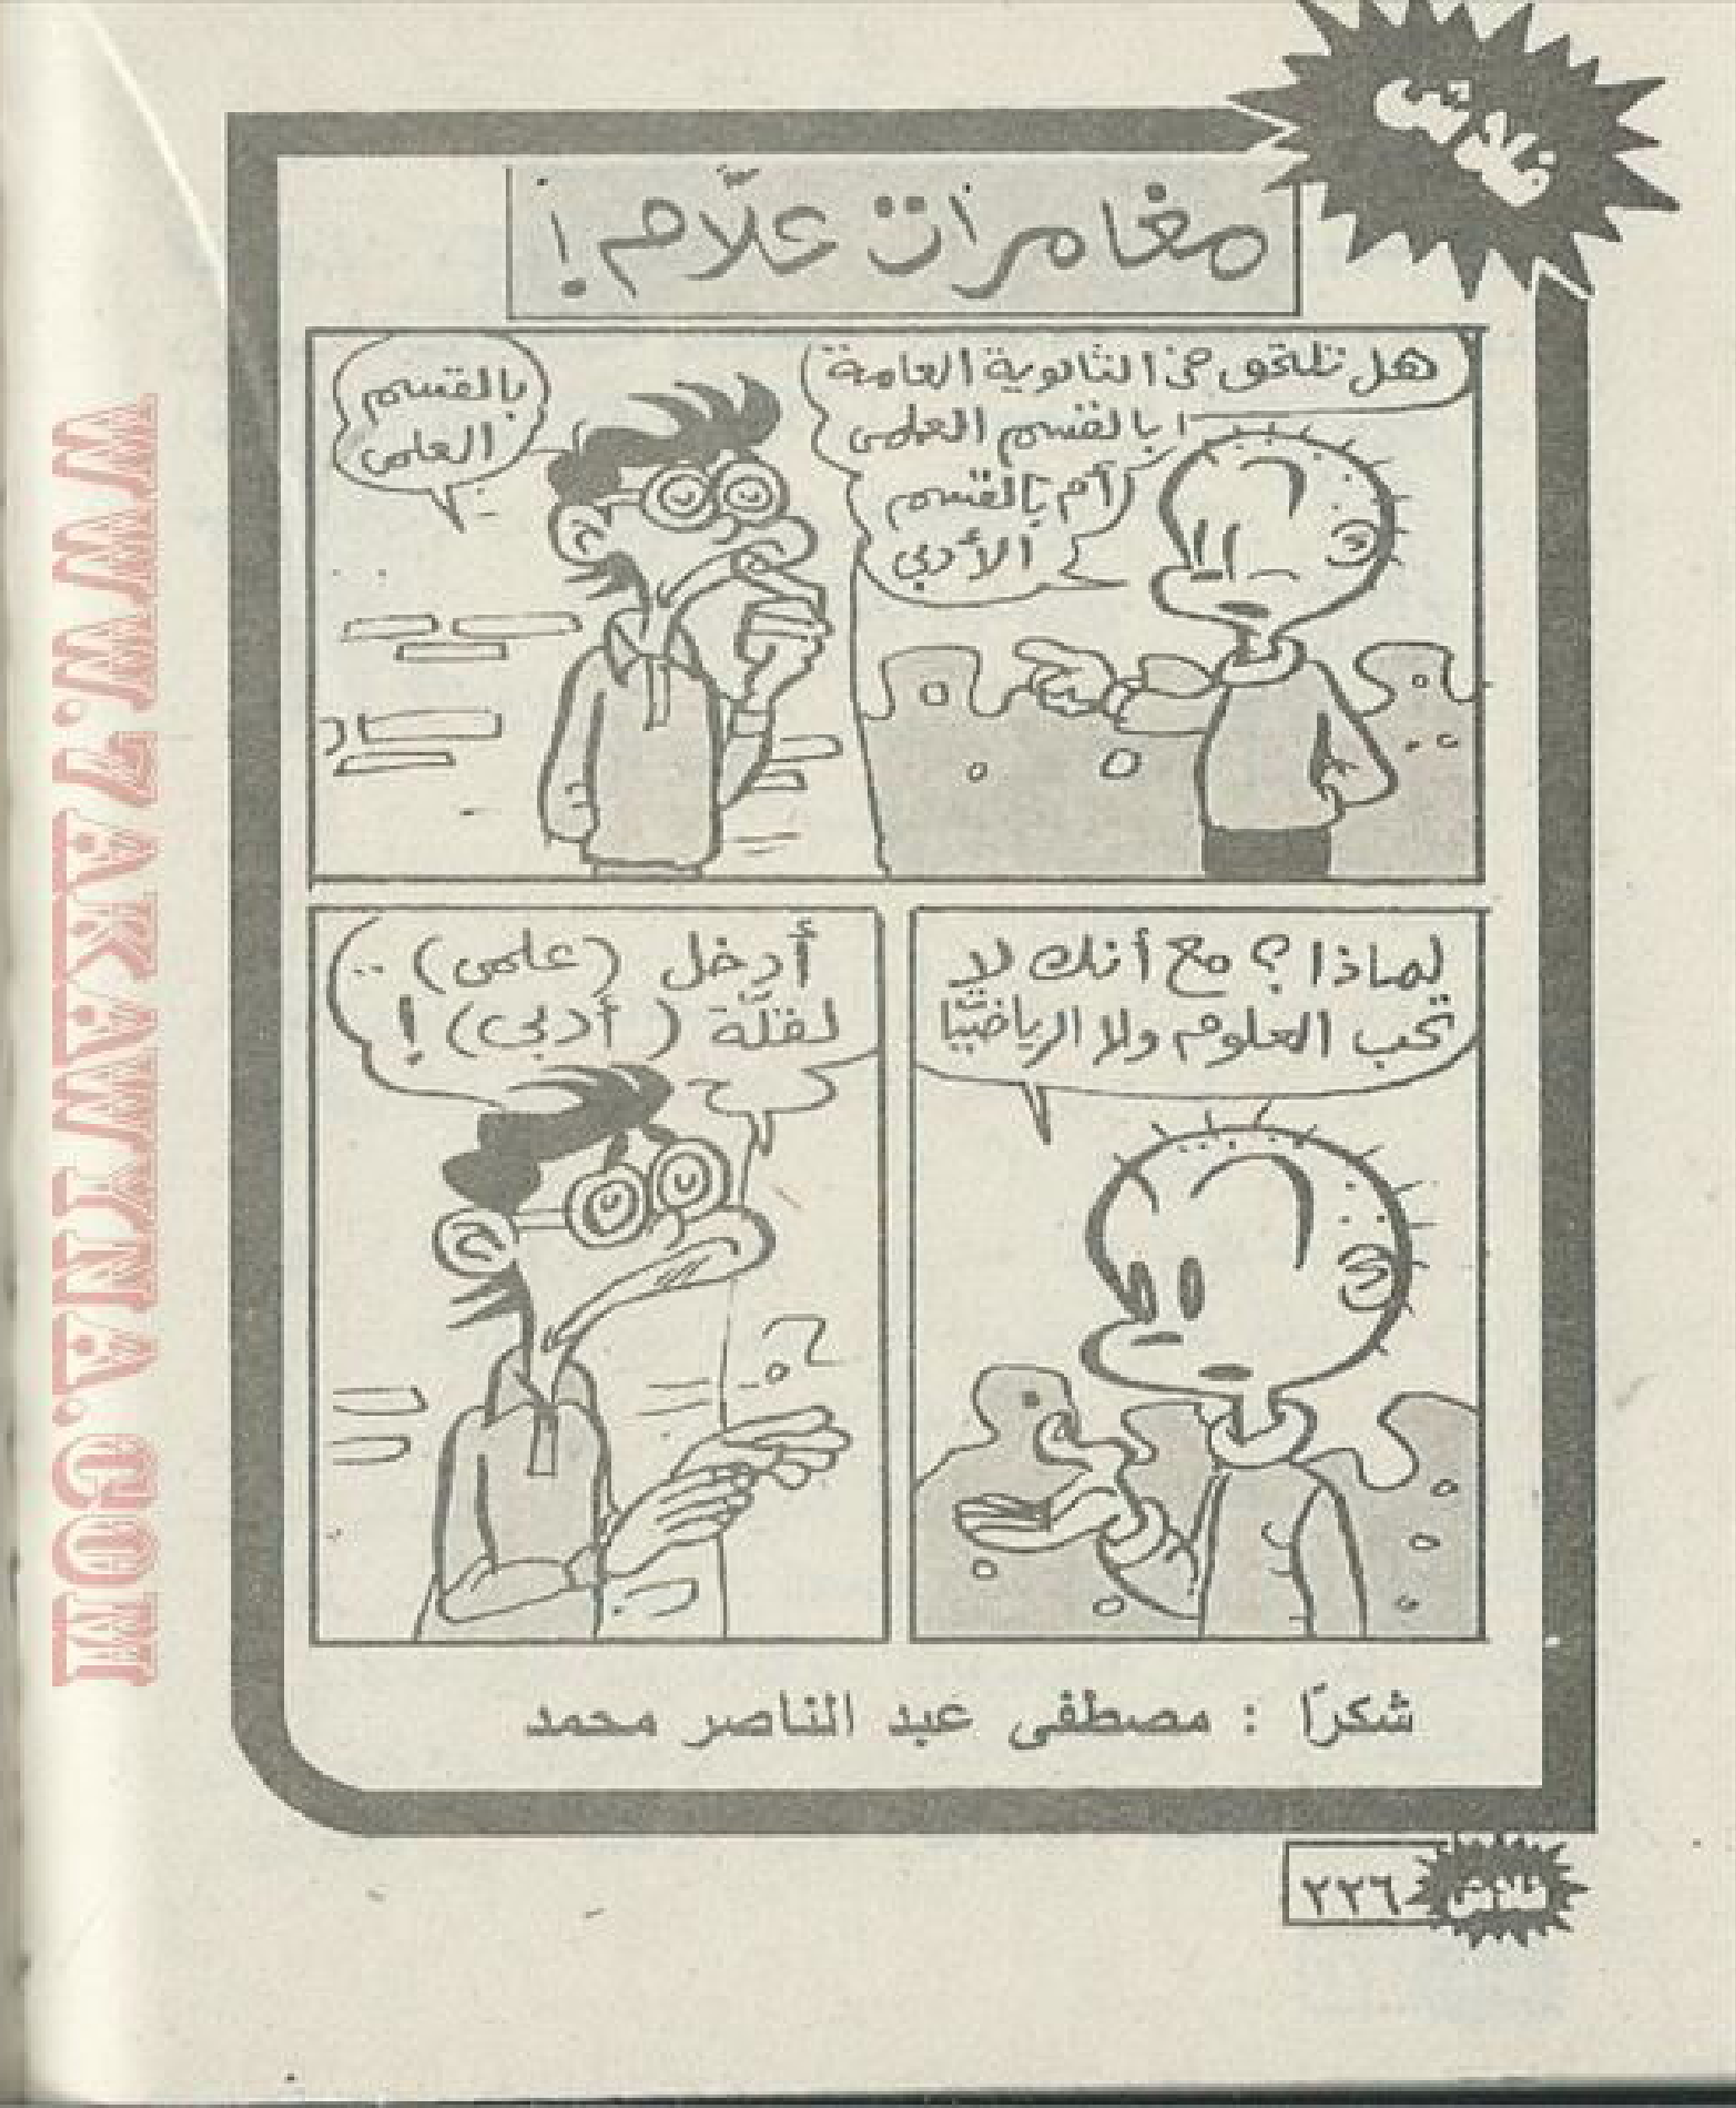 فلاش
مغامرات علّام!
هل تلتحق فى الثانوية العامة
بالقسم العلمى
أم بالقسم
الأدبى
بالقسم
العلمى
لماذا؟ مع أنك لا
تحب العلوم ولا الرياضيّا
أدخل (علمى) ..
لقلّة (أدبى)!
شكرًا : مصطفى عبد الناصر محمد
فلاش ٢٢٦
WWW.7AKAWYNA.COM